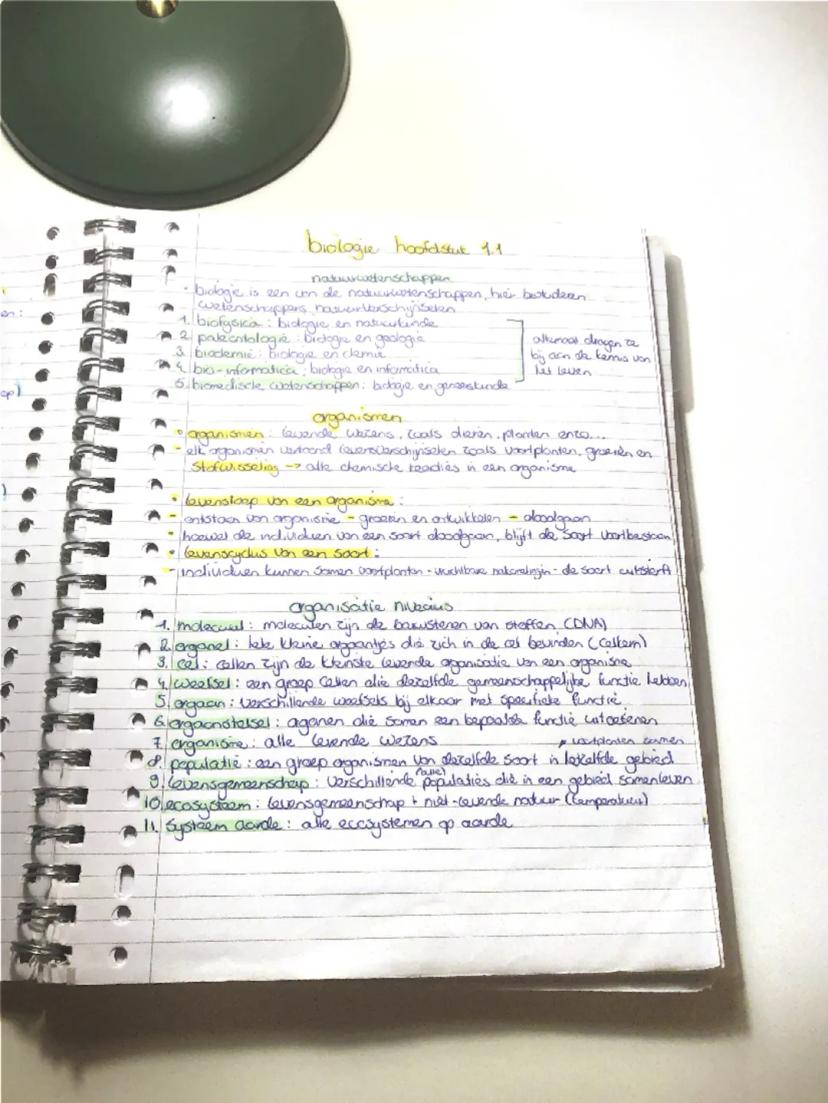 biologie hoofdstuk 1.1
natuurwetenschappen
- biologie is een van de natuurwetenschappen, hier bestuderen
wetenschappers natuurverschijnselen
1. biofysica : biologie en natuurkunde
2. paleontologie : biologie en geologie
3. biochemie : biologie en chemie
4. bio-informatica : biologie en informatica
5. biomedische wetenschappen : biologie en geneeskunde
allemaal dragen ze
bij aan de kennis van
het leven
organismen
• organismen : levende wezens, zoals dieren, planten enzo...
- elk organismen vertoond levensverschijnselen zoals voortplanten, groeien en
stofwisseling -> alle chemische reacties in een organisme
• levensloop van een organisme :
- ontstaan van organisme - groeien en ontwikkelen - doodgaan
- hoewel de individuen van een soort doodgaan, blijft de soort voortbestaan
• levenscyclus van een soort :
- individuen kunnen samen voortplanten - vruchtbare - de soort uitsterft
organisatie niveaus
1. molecuul : moleculen zijn de bouwstenen van stoffen (DNA)
2. organel : hele kleine orgaantjes die zich in de cel bevinden (celkern)
3. cel : cellen zijn de kleinste levende organisatie van een organisme
4. weefsel : een groep cellen die dezelfde gemeenschappelijke functie hebben
5. orgaan : verschillende weefsels bij elkaar met specifieke functie
6. orgaanstelsel : organen die samen een bepaalde functie uitoefenen
7. organisme : alle levende wezens
voortplanten samen
8. populatie : een groep organismen van dezelfde soort in hetzelfde gebied
(alle)
9. levensgemeenschap : verschillende populaties die in een gebied samenleven
10. ecosysteem : levensgemeenschap + niet-levende natuur (temperatuur)
11. systeem aarde : alle ecosystemen op aarde